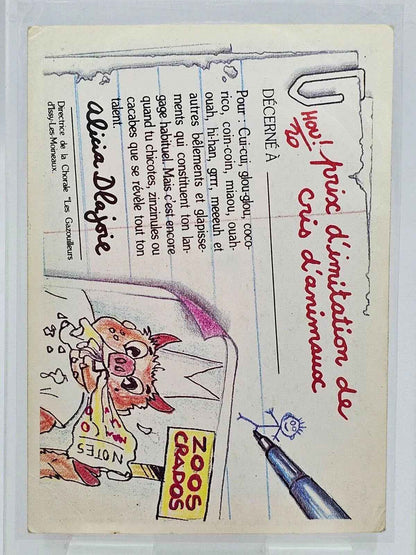 HOU! prix d'imitation de
20 cris d'animaux
DÉCERNÉ À
Pour : Cui-cui, glou-glou, coco-
rico, coin-coin, miaou, ouah-
ouah, hi-han, grrr, meeeuh et
autres bêlements et glapisse-
ments qui constituent ton lan-
gage habituel. Mais c'est encore
quand tu chicotes, zinzinules ou
cacabes que se révèle tout ton
talent.
Alicia Dlajoie
Directrice de la Chorale "Les Gazouilleurs
d'Issy-Les-Moineaux
ZOOS
CRADOS
NOTES